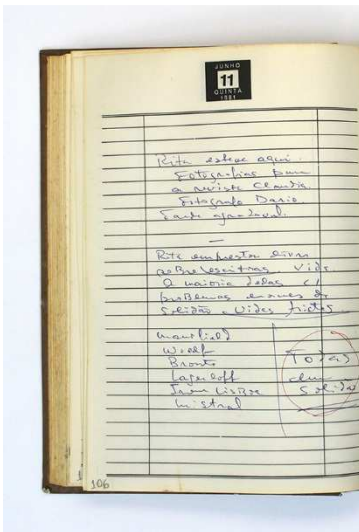 JUNHO
11
QUINTA
1981
Rita esteve aqui.
Fotografias para
a revista Claudia.
Fotógrafo Dario
Tarde agradável.
—
Rita emprestou livro
sobre escritoras. Vida
a maioria delas c/
problemas enormes de
solidão e vidas tristes
Mansfield
Woolf
Bronte
Lagerloff
Irene Lisboa
Mistral
Todas
solidão
106